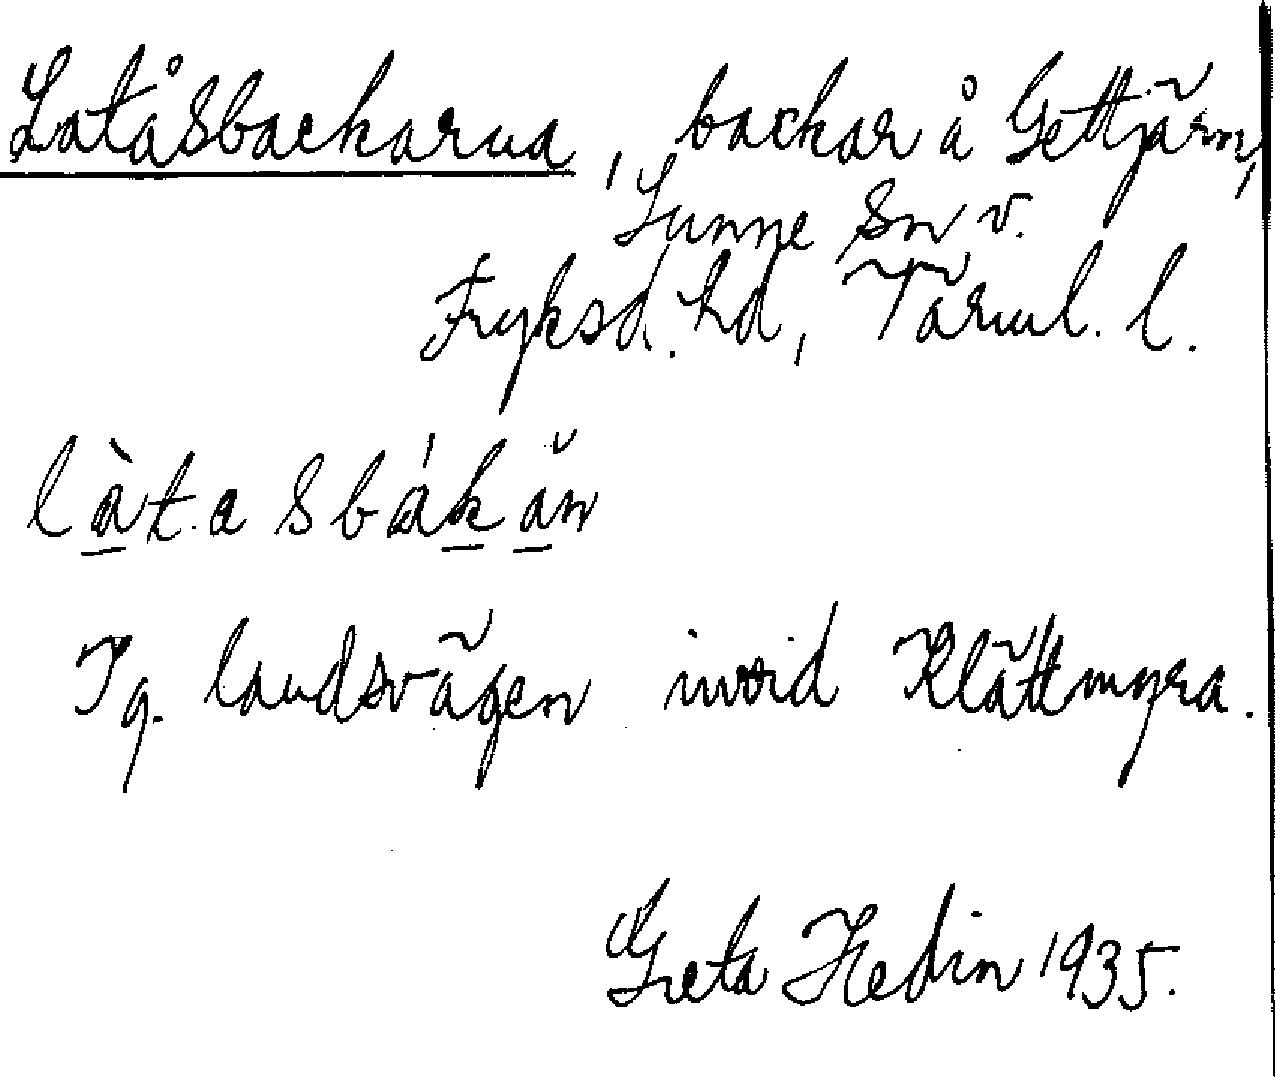 Latåsbackarna, backar å Gettjärn,
Sunne Sn v.
Fryksd. hd, Värml. l.
làtasbákăn
Tg. landsvägen invid Klättmyra.
Greta Hedin 1935.